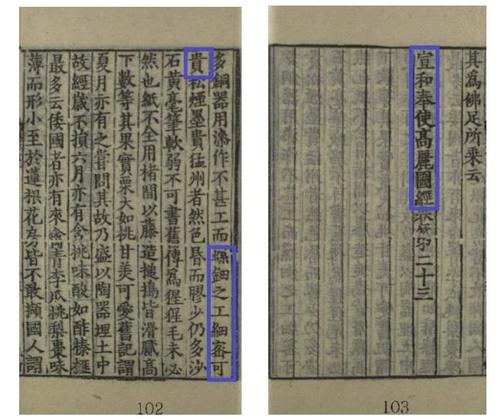 多銅器用漆作不甚工而螺鈿之工細密可
貴松煙墨貴猛州者然色昏而膠少仍多沙
石黃毫筆軟弱不可書舊傳為猩猩毛未必
然也紙不全用楮間以藤造搥搗皆滑膩高
下數等其果實栗大如桃甘美可愛舊記謂
夏月亦有之嘗問其故乃盛以陶器埋土中
故經歲不損六月亦有含桃味酸如酢榛榧
最多云倭國者亦有來禽青李瓜桃梨棗味
薄而形小至於蓮根花房皆不敢擷國人謂
102
其為佛足所乘云
宣和奉使高麗圖經卷第二十三
103